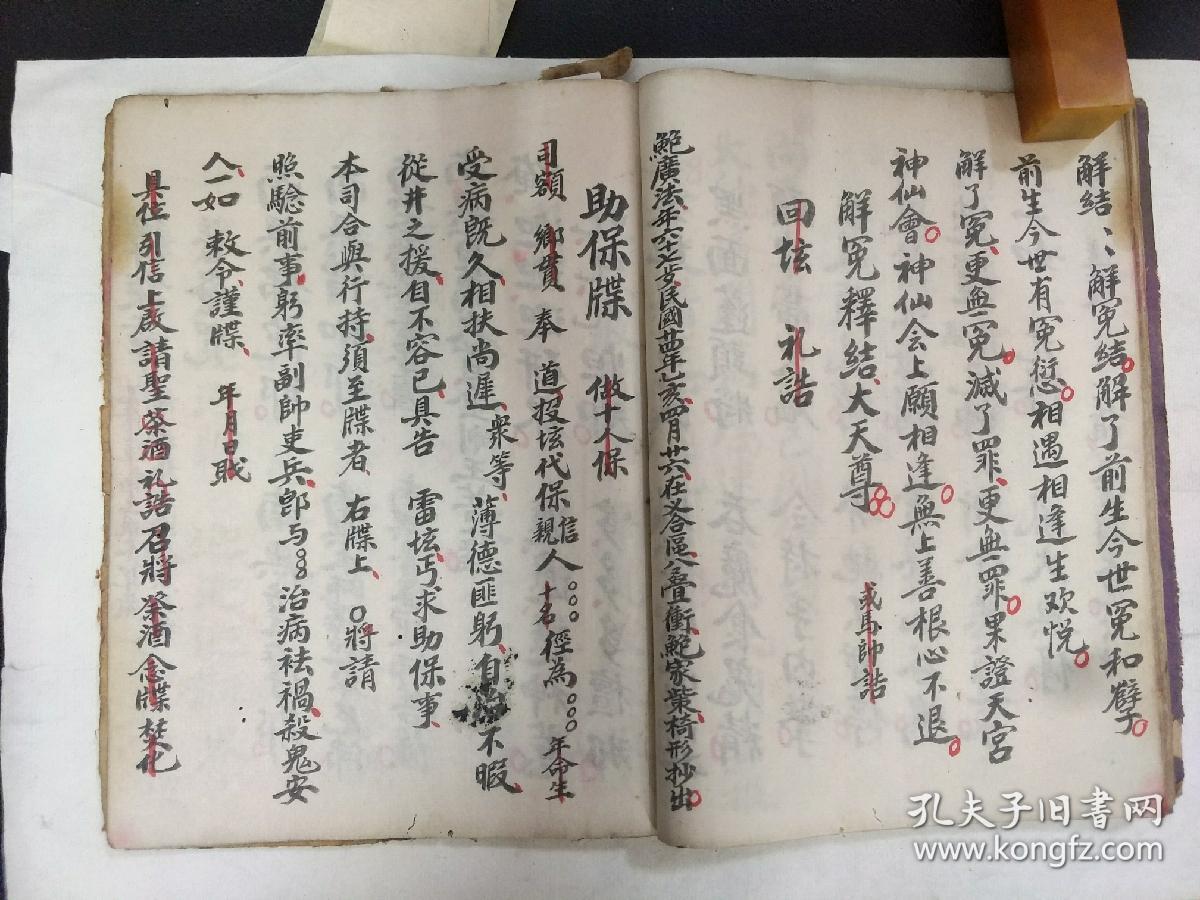 解結、、解冤結。解了前生今世冤和孽。
前生今世有冤愆。相遇相逢生欢悦。
解了冤、更無冤。滅了罪、更無罪。果證天宮
神仙會。神仙会上願相逢。無上善根心不退。
解冤釋結、大天尊。
回坛 礼誥 或馬帥誥
鮑廣法、年六十七岁、民國廿四年乙亥、四月廿六、在义合區八叠衝、鮑家柴椅形抄出。
助保牒 做十人保
司額 鄉貫 奉 道、投坛代保 親信人 十名 徑為 年命生
受病既久、相扶尚遲、衆等、薄德匪躬、自 不暇、
從井之援、自不容已、具告 雷坛、丐求助保事、
本司合與行持、須至牒者、 右牒上、 將請
照驗前事、躬率副帥吏兵、郎与 治病祛禍、殺鬼安
人、一如 敕令、謹牒、 年月日戢
具位引信上啟請聖、茶酒礼誥召將、祭酒念牒焚化
孔夫子旧书网
www.kongfz.com